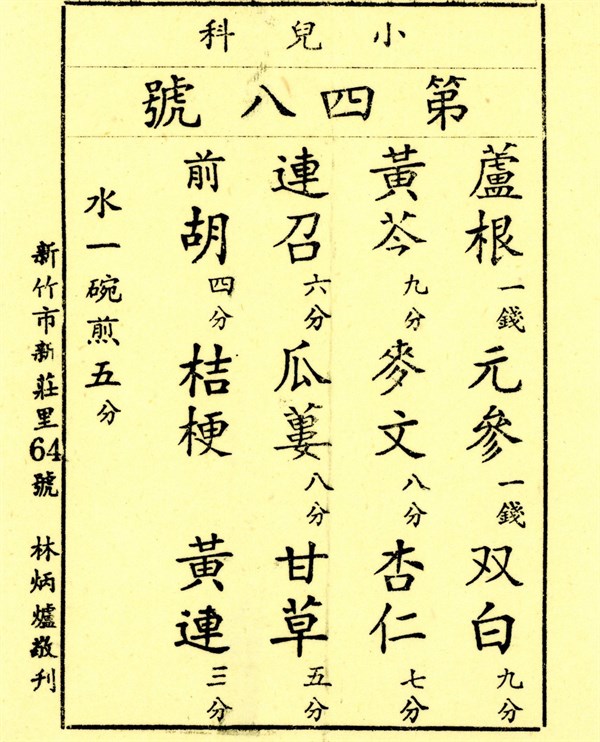 小兒科
第四八號
蘆根一錢 元參一錢 双白九分
黃芩九分 麥文八分 杏仁七分
連召六分 瓜蔞八分 甘草五分
前胡四分 桔梗 黃連三分
水一碗煎五分
新竹市新莊里64號 林炳爐敬刊